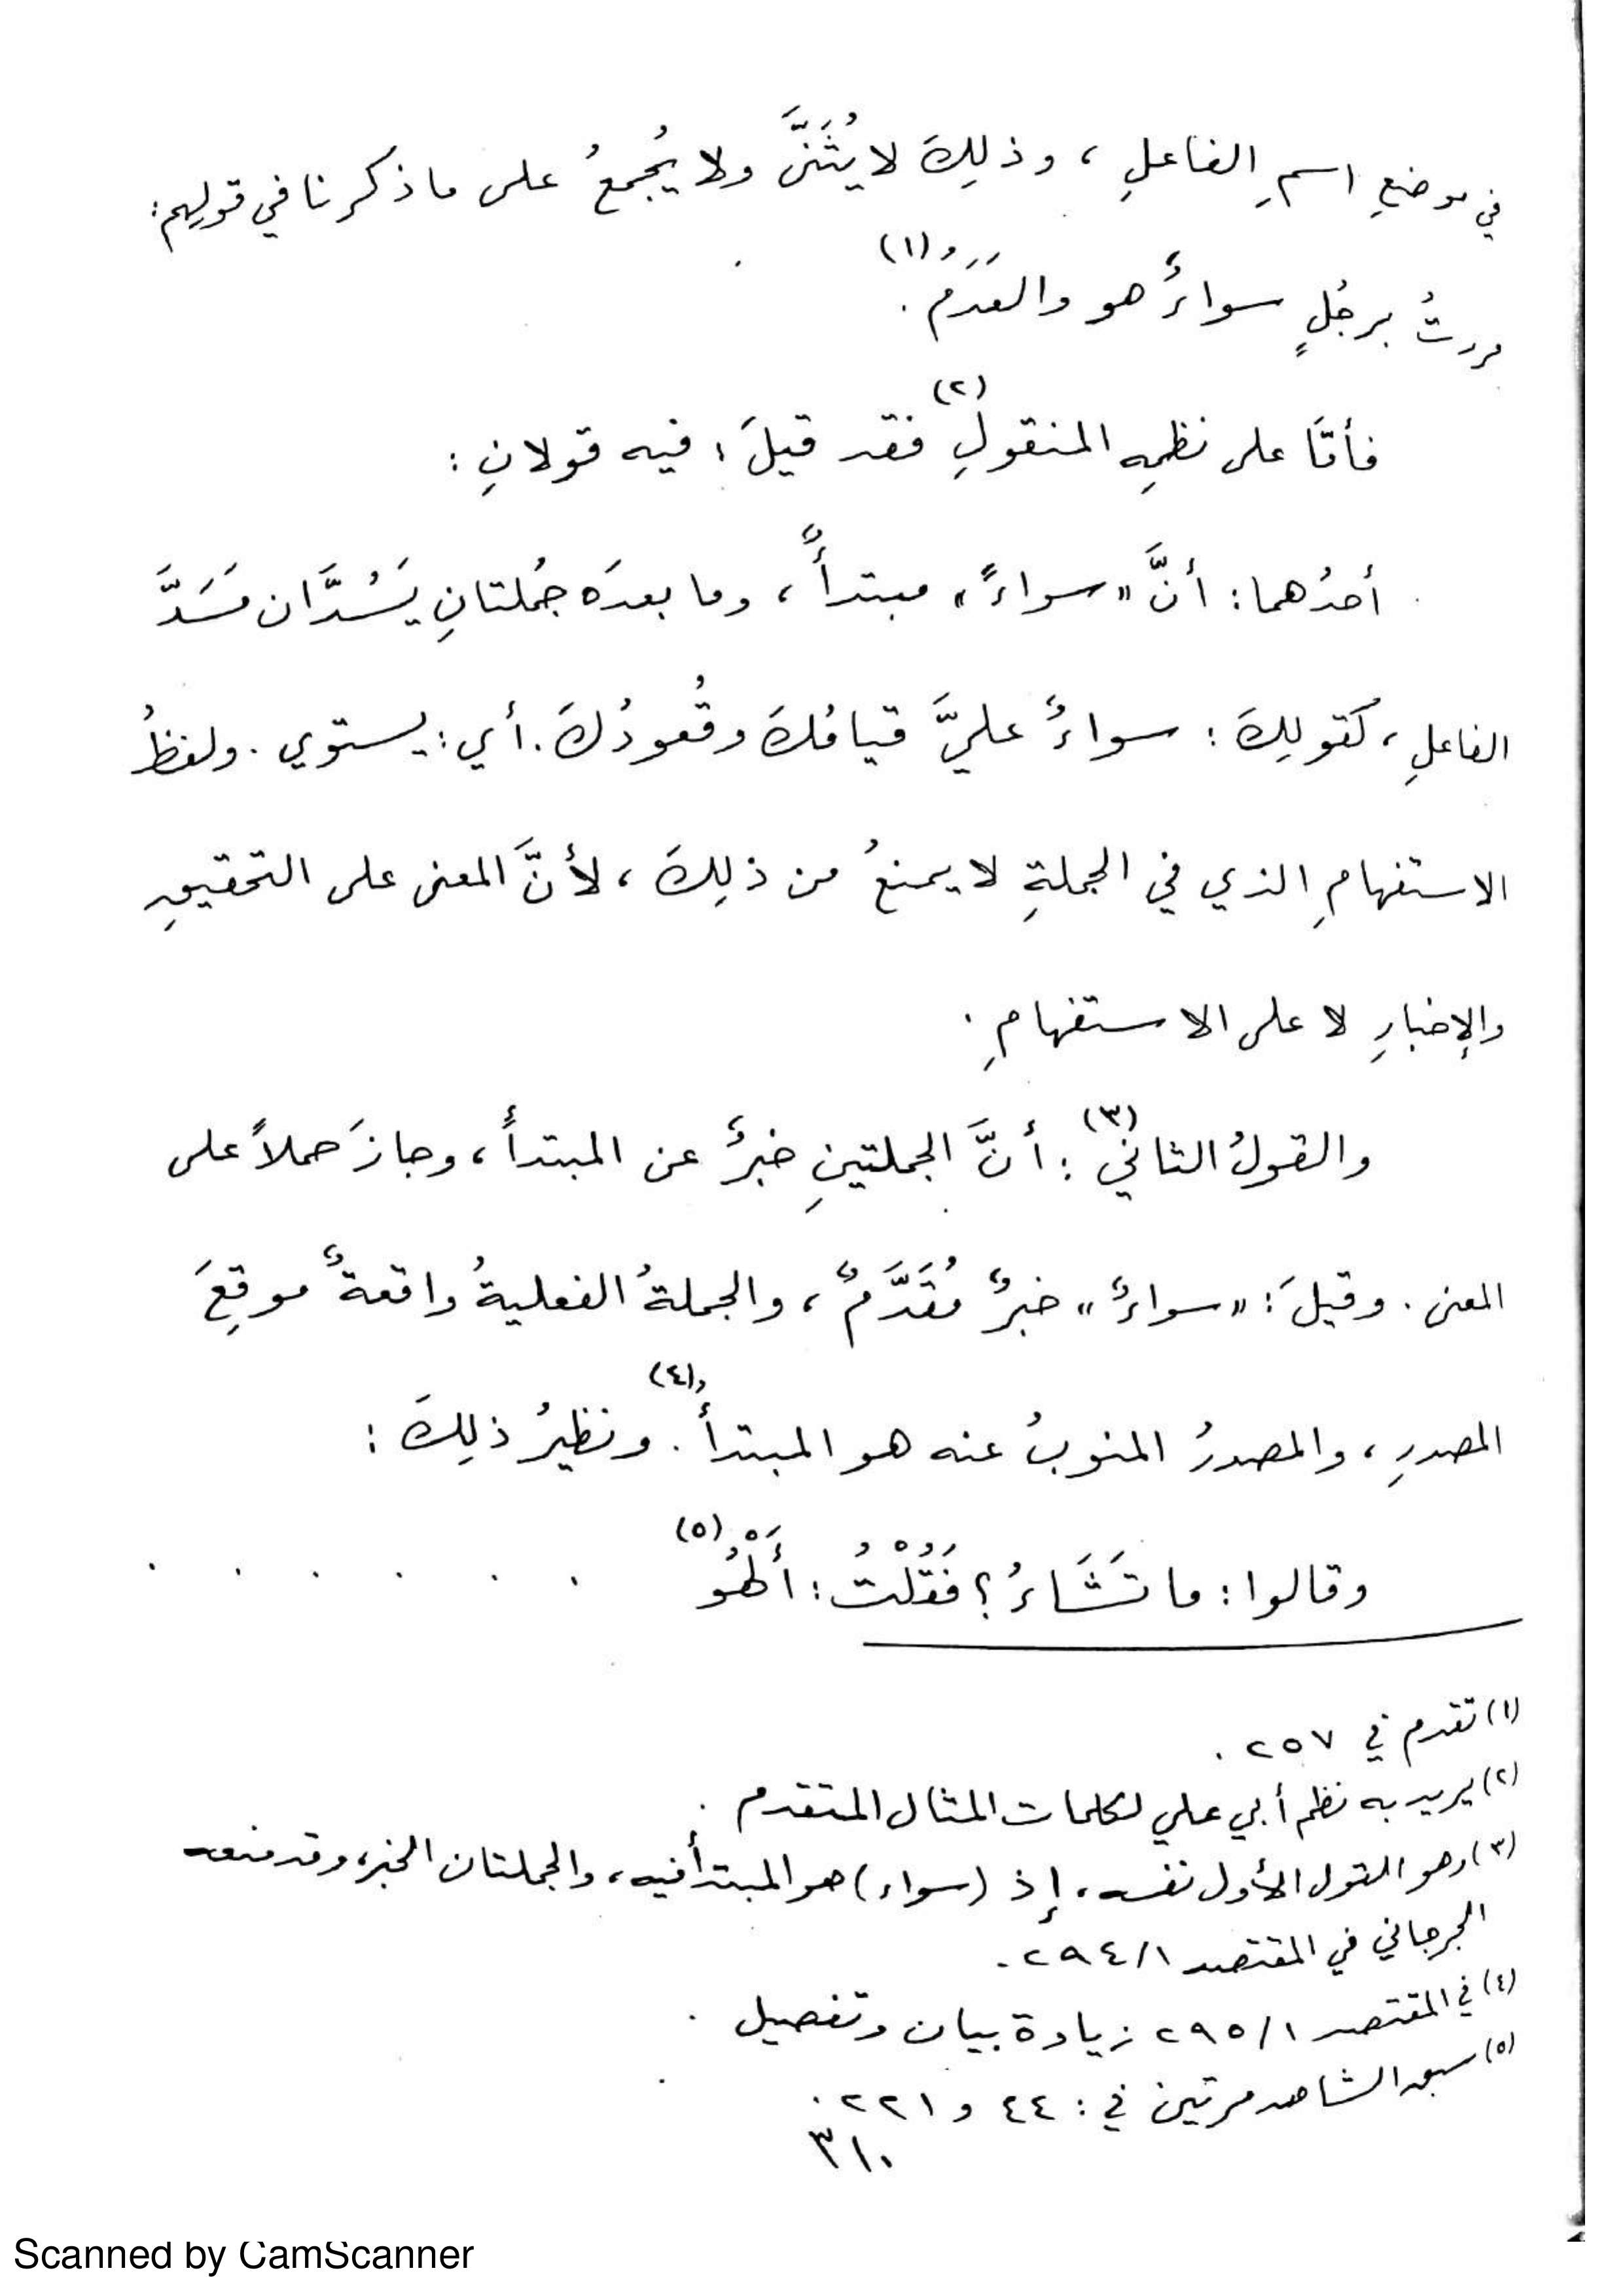 في موضعِ اسمِ الفاعلِ ، وذلِكَ لا يُثَنَّى ولا يُجمعُ على ما ذكرنا في قولِهم :
مررتُ برجُلٍ سواءٌ هو والعَدَمُ(١) .
فأمَّا على نظمِهِ المنقولِ(٢) فقد قيلَ : فيه قولانِ :
أحدُهما : أنَّ «سواءً» مبتدأٌ ، وما بعدَه جُملتانِ يَسُدَّان مَسَدَّ
الفاعلِ ، كقولِكَ : سواءٌ عليَّ قيامُكَ وقُعودُكَ . أي : يستوي . ولفظُ
الاستفهامِ الذي في الجملةِ لا يمنعُ من ذلِكَ ، لأنَّ المعنى على التحقيقِ
والإخبارِ لا على الاستفهامِ .
والقولُ الثاني(٣) : أنَّ الجملتينِ خبرٌ عن المبتدأ ، وجازَ حملاً على
المعنى . وقيلَ : «سواءٌ» خبرٌ مُقَدَّمٌ ، والجملةُ الفعليةُ واقعةٌ موقعَ
المصدرِ ، والمصدرُ المنوبُ عنه هو المبتدأُ(٤) . ونظيرُ ذلِكَ :
وقالوا : ما تَشَاءُ ؟ فَقُلْتُ : أَلْهُو(٥) . . . . . .
(١) تقدم في ٢٥٧ .
(٢) يريد به نظم أبي علي لكلمات المثال المتقدم .
(٣) وهو القول الأول نفسه ، إذ (سواء) هو المبتدأ فيه ، والجملتان الخبر ، وقد منعه
الجرجاني في المقتصد ٢٩٤/١ .
(٤) في المقتصد ٢٩٥/١ زيادة بيان وتفصيل .
(٥) سبق الشاهد مرتين في : ٤٤ و ٢٢١ .
٣١٠
Scanned by CamScanner